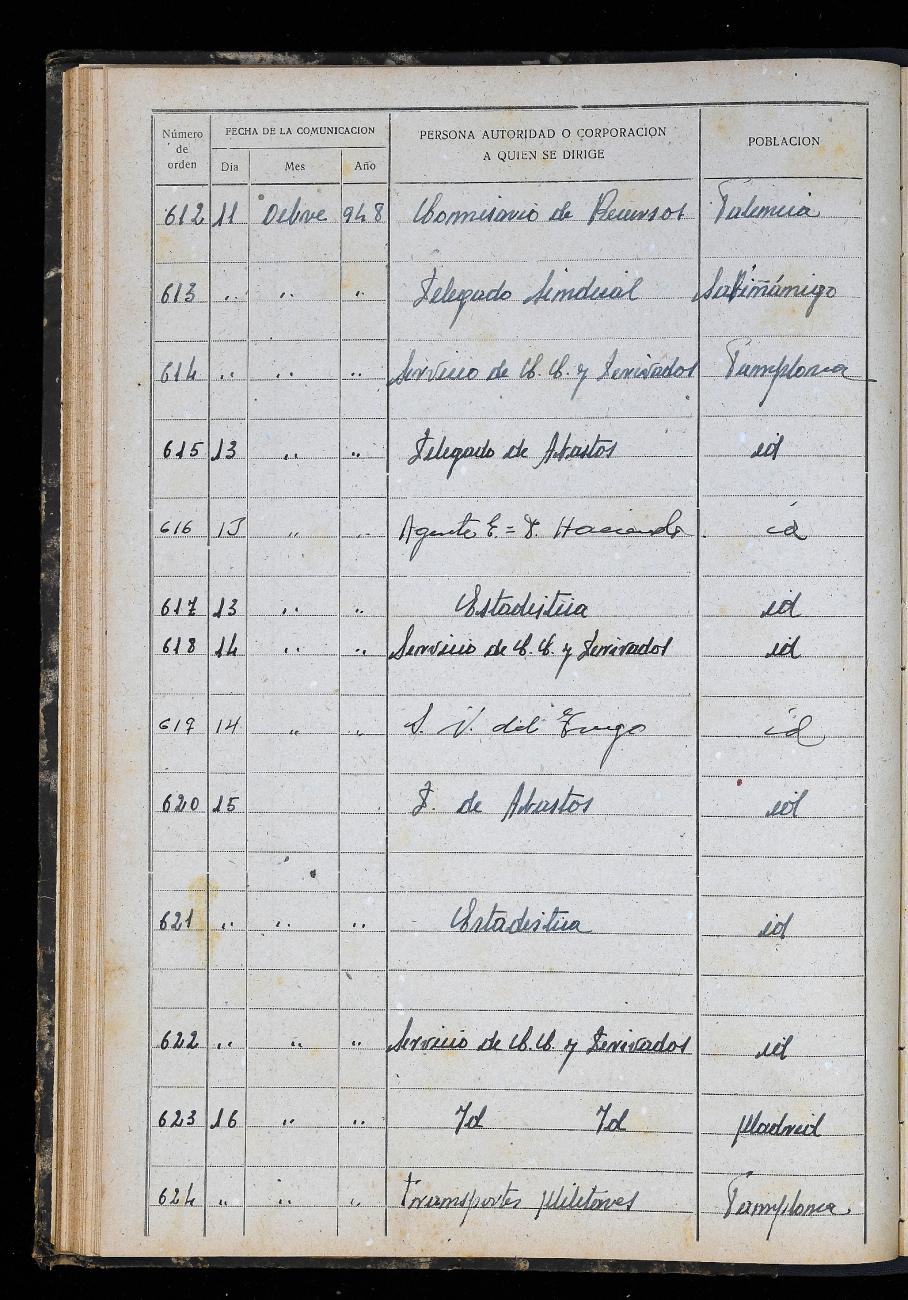 Número de orden FECHA DE LA COMUNICACION PERSONA AUTORIDAD O CORPORACION A QUIEN SE DIRIGE POBLACION
Día Mes Año
612 11 Octbre 948 Comisario de Recursos Palencia
613 " " " Delegado Sindical Sabiñánigo
614 " " " Servicio de C. C. y Derivados Pamplona
615 13 " " Delegado de Abastos id
616 13 " " Agente E. = D. Hacienda id
617 13 " " Estadistica id
618 14 " " Servicio de C. C. y Derivados id
619 14 " " S. N. del Trigo id
620 15 D. de Abastos id
621 " " " Estadistica id
622 " " " Servicio de C. C. y Derivados id
623 16 " " Id Id Madrid
624 " " " Transportes Militares Pamplona